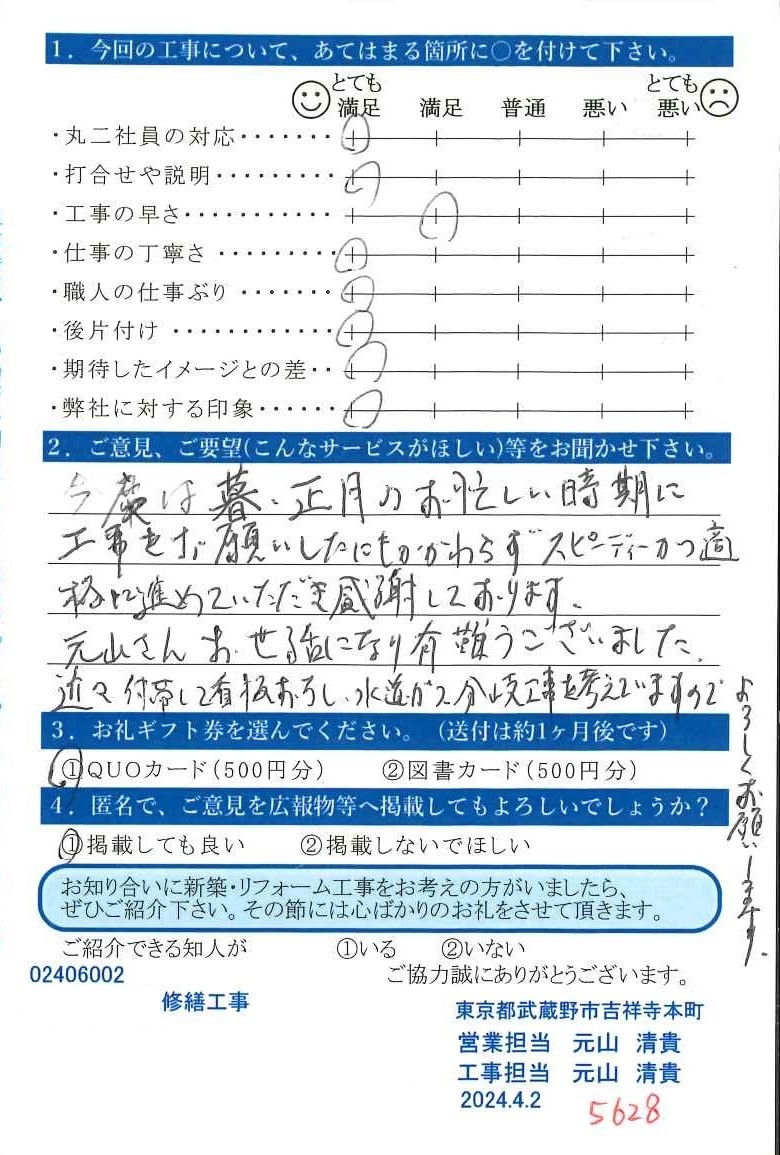 1．今回の工事について、あてはまる箇所に○を付けて下さい。
とても満足 満足 普通 悪い とても悪い
・丸二社員の対応・・・・・・・
・打合せや説明・・・・・・・・・
・工事の早さ・・・・・・・・・・・
・仕事の丁寧さ・・・・・・・・・
・職人の仕事ぶり・・・・・・・
・後片付け・・・・・・・・・・・・
・期待したイメージとの差・・
・弊社に対する印象・・・・・・
2．ご意見、ご要望(こんなサービスがほしい)等をお聞かせ下さい。
今度は暮、正月のお忙しい時期に
工事をお願いしたにもかかわらずスピーディーかつ適
格に進めていただき感謝しております。
元山さんお世話になり有難うございました。
近々付帯して看板おろし、水道ガス分岐工事を考えていますので
よろしくお願いします。
3．お礼ギフト券を選んでください。（送付は約1ヶ月後です）
①QUOカード(500円分) ②図書カード(500円分)
4．匿名で、ご意見を広報物等へ掲載してもよろしいでしょうか？
①掲載しても良い ②掲載しないでほしい
お知り合いに新築・リフォーム工事をお考えの方がいましたら、
ぜひご紹介下さい。その節には心ばかりのお礼をさせて頂きます。
ご紹介できる知人が ①いる ②いない
02406002 ご協力誠にありがとうございます。
修繕工事
東京都武蔵野市吉祥寺本町
営業担当 元山 清貴
工事担当 元山 清貴
2024.4.2
5628